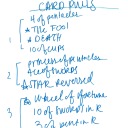 CARD PULLS
4 of pentacles
1 * The Fool
* DEATH
10 of CUPS
Princess of pentacles
4 of swords
2 * STAR Reversed
Wheel of fortune
3 10 of swords in R
3 of pent in R